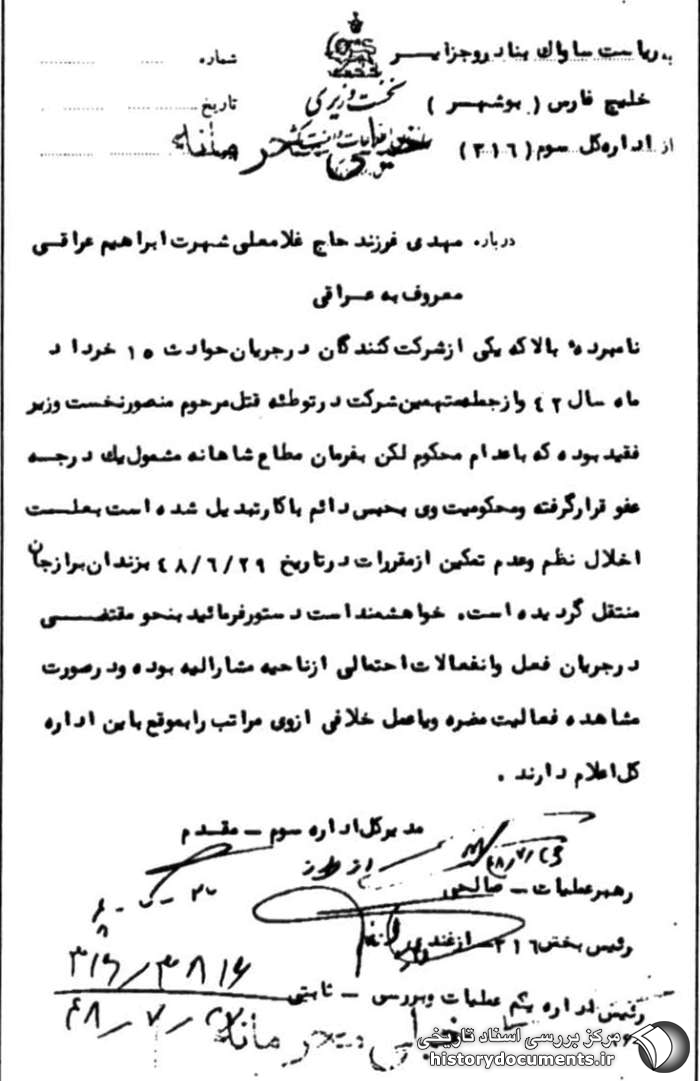 به ریاست ساواك بنادر و جزایر
شماره
خلیج فارس ( بوشهر )
نخست وزیری
تاریخ
از اداره کل سوم ( ۳۱۶ )
خیلی محرمانه
درباره مهدی فرزند حاج غلامعلی شهرت ابراهیم عراقی
معروف به عراقی
نامبرده بالا که یکی از شرکت کنندگان در جریان حوادث ۱۵ خرداد
ماه سال ۴۲ و از جمله متهمین شرکت در توطئه قتل مرحوم منصور نخست وزیر
فقید بوده که باعدام محکوم لکن بفرمان مطاع شاهانه مشمول یك درجه
عفو قرار گرفته ومحکومیت وی بحبس دائم با کار تبدیل شده است بعلت
اخلال نظم وعدم تمکین از مقررات در تاریخ ۴۸/۶/۲۹ بزندان برازجان
منتقل گردیده است. خواهشمند است دستور فرمائید بنحو مقتضی
در جریان فعل وانفعالات احتمالی از ناحیه مشارالیه بوده ودر صورت
مشاهده فعالیت مضره ویا عمل خلافی از وی مراتب را بموقع باین اداره
کل اعلام دارند .
مدیر کل اداره سوم - مقدم
از طرف
رهبر عملیات - صالحی
رئیس بخش ۳۱۶ - ازغندی
۳۱۶/۳۸۱۶
رئیس اداره یکم عملیات وبررسی - ثابتی
۴۸/۷/۲۷
خیلی محرمانه
مرکز بررسی اسناد تاریخی
historydocuments.ir